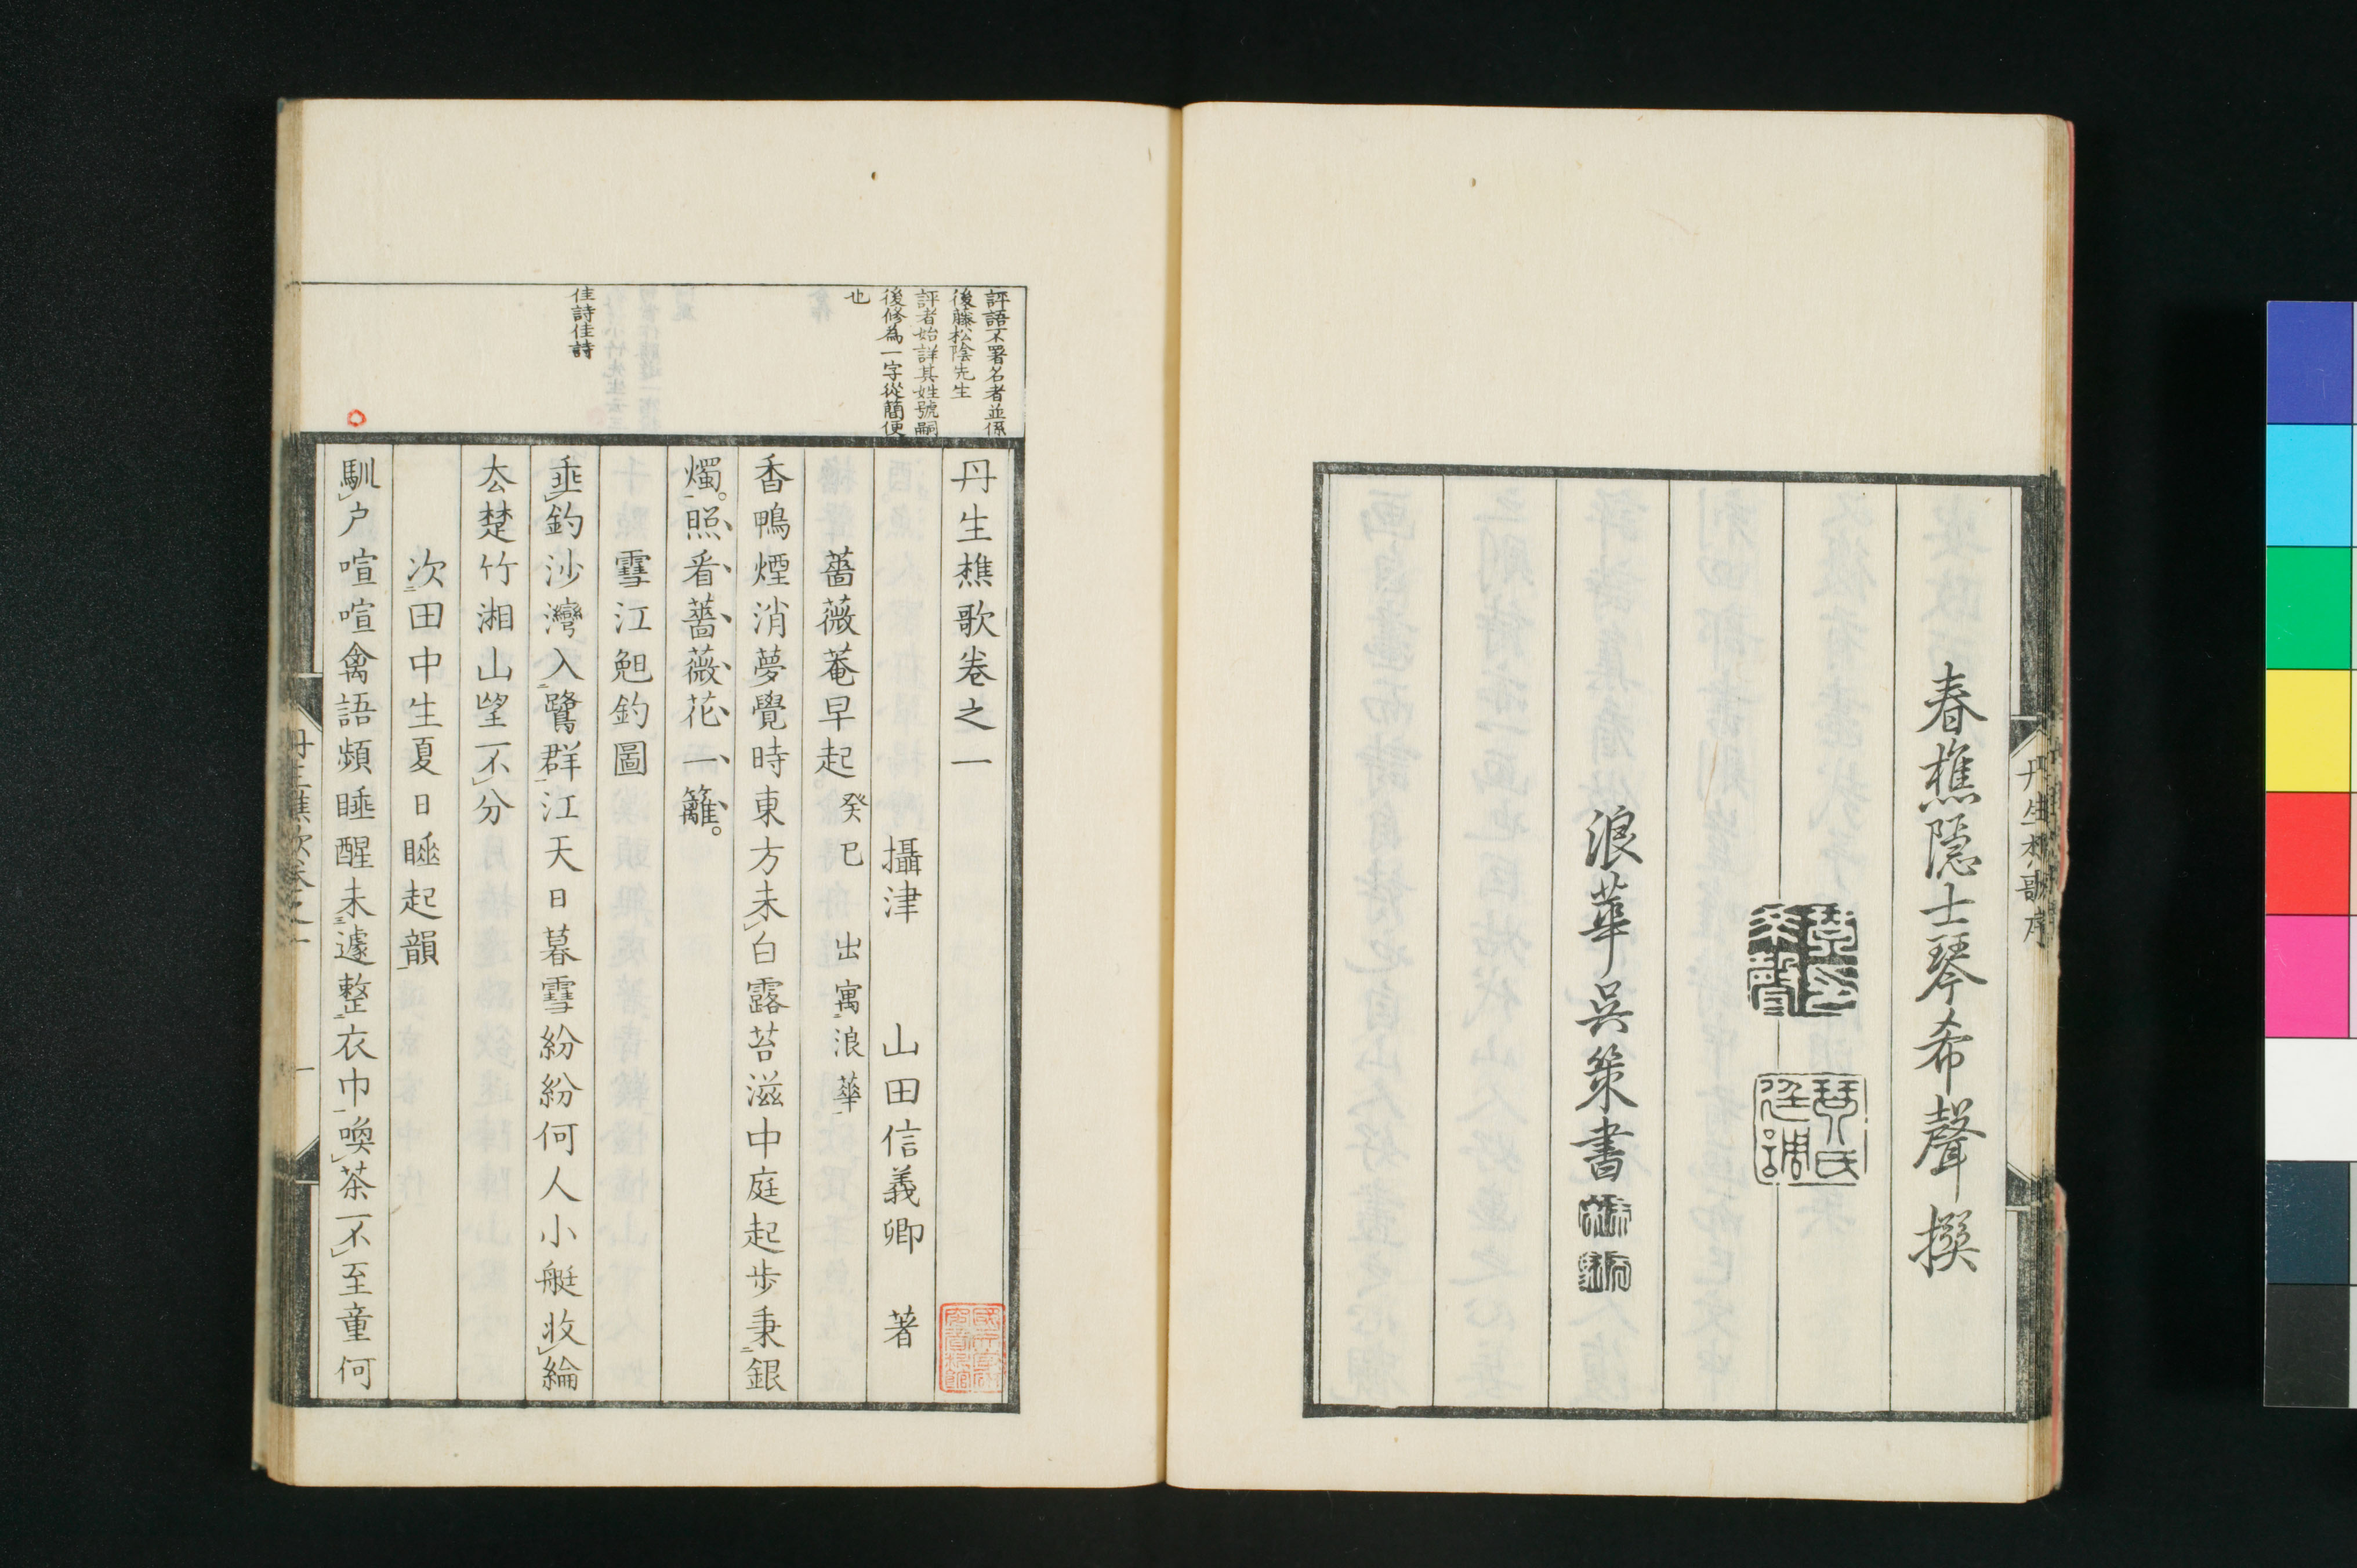 丹生樵歌序
春樵隱士琴希聲撰
浪華吳策書
評語不署名者並係
後藤松陰先生
評者始詳其姓號嗣
後修為一字從簡便
也
佳詩佳詩
丹生樵歌卷之一
攝津 山田信義卿 著
薔薇菴早起 癸巳 出寓浪華
香鴨煙消夢覺時東方未白露苔滋中庭起步秉銀
燭照看薔薇花一籬
雪江釣圖
垂釣沙灣入鷺群江天日暮雪紛紛何人小艇收綸
去楚竹湘山望不分
次田中生夏日睡起韻
馴戶喧喧禽語頻睡醒未遽整衣巾喚茶不至童何
丹生樵歌卷之一 一